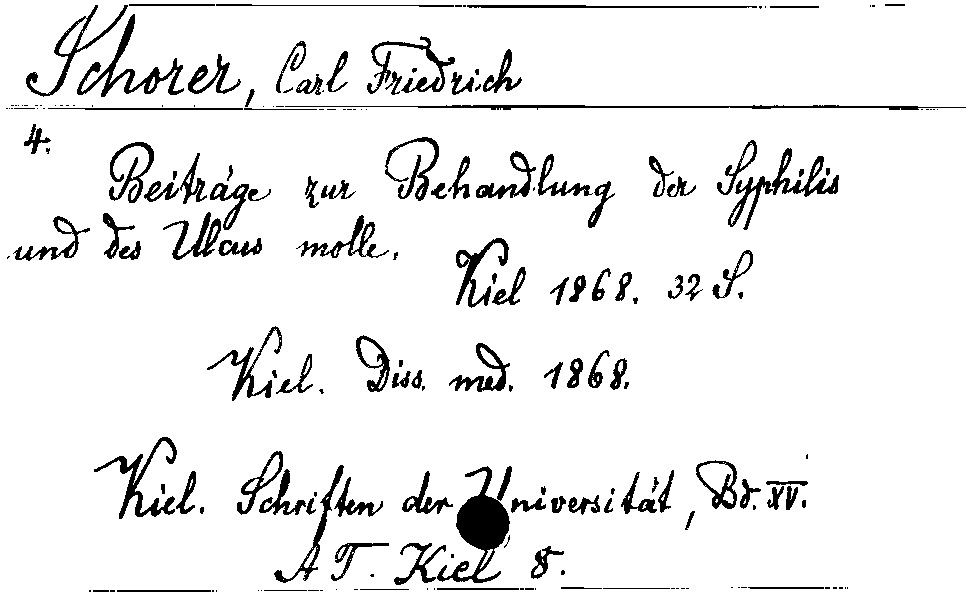 Schorer, Carl Friedrich
4.
Beiträge zur Behandlung der Syphilis
und des Ulcus molle.
Kiel 1868. 32 S.
Kiel. Diss. med. 1868.
Kiel. Schriften der Universität, Bd. XV.
AT. Kiel 8.